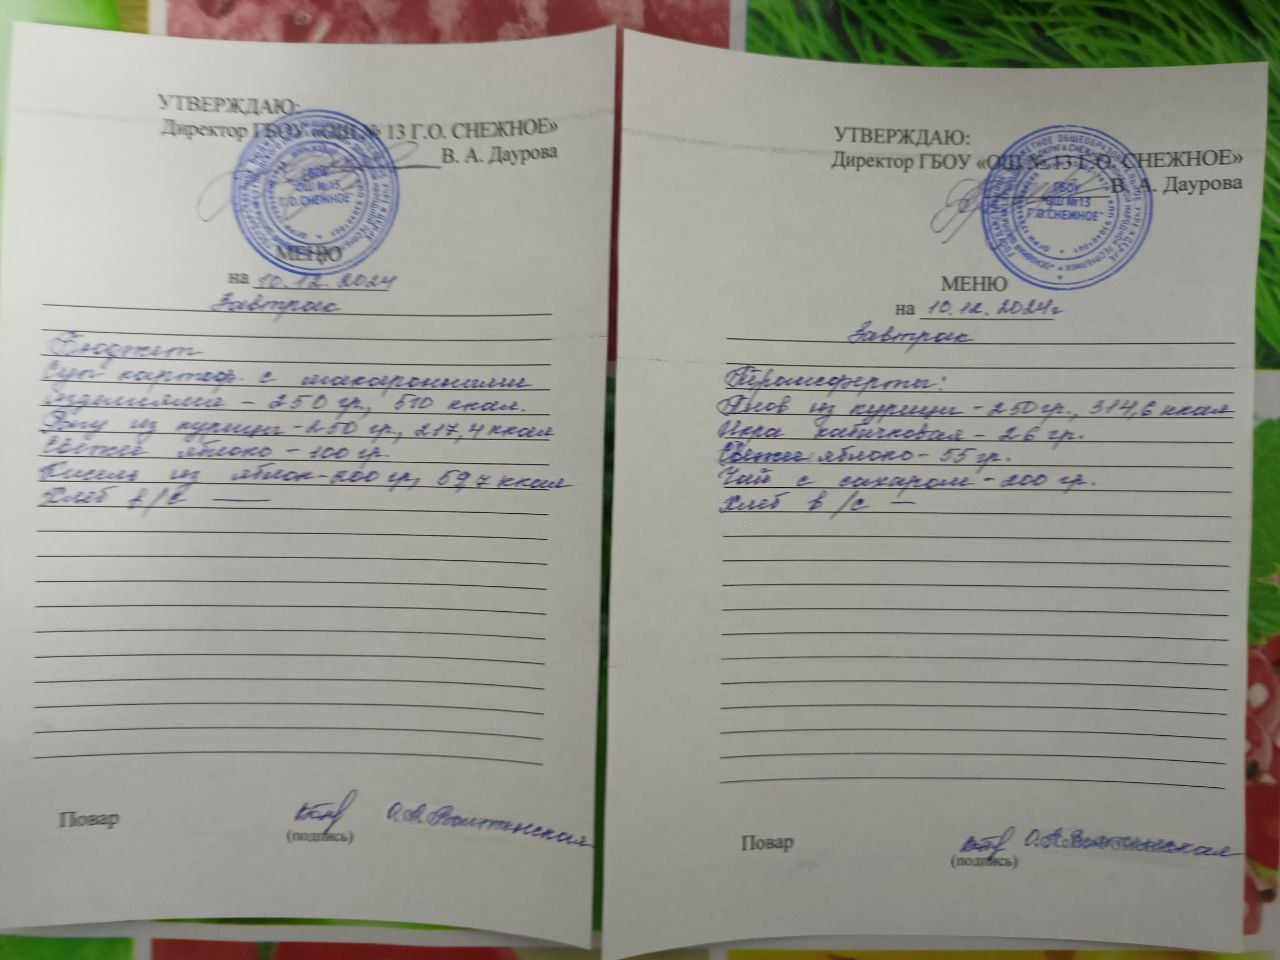 УТВЕРЖДАЮ:
Директор ГБОУ «ОШ № 13 Г.О. СНЕЖНОЕ»
В. А. Даурова
ГБОУ
ОШ №13
Г.О.СНЕЖНОЕ
МЕНЮ
на 10.12.2024
Завтрак
Бюджет
Суп картоф. с макаронными
изделиями - 250 гр., 510 ккал.
Рагу из курицы - 250 гр., 217,4 ккал
Свежее яблоко - 100 гр.
Кисель из яблок - 200 гр, 59,7 ккал
Хлеб в/с —
Повар
(подпись)
УТВЕРЖДАЮ:
Директор ГБОУ «ОШ № 13 Г.О. СНЕЖНОЕ»
В. А. Даурова
ГБОУ
ОШ №13
Г.О.СНЕЖНОЕ
МЕНЮ
на 10.12.2024г
Завтрак
Трансферты:
Плов из курицы - 250 гр., 314,6 ккал
Икра кабачковая - 26 гр.
Свежее яблоко - 55 гр.
Чай с сахаром - 200 гр.
Хлеб в/с —
Повар
(подпись)